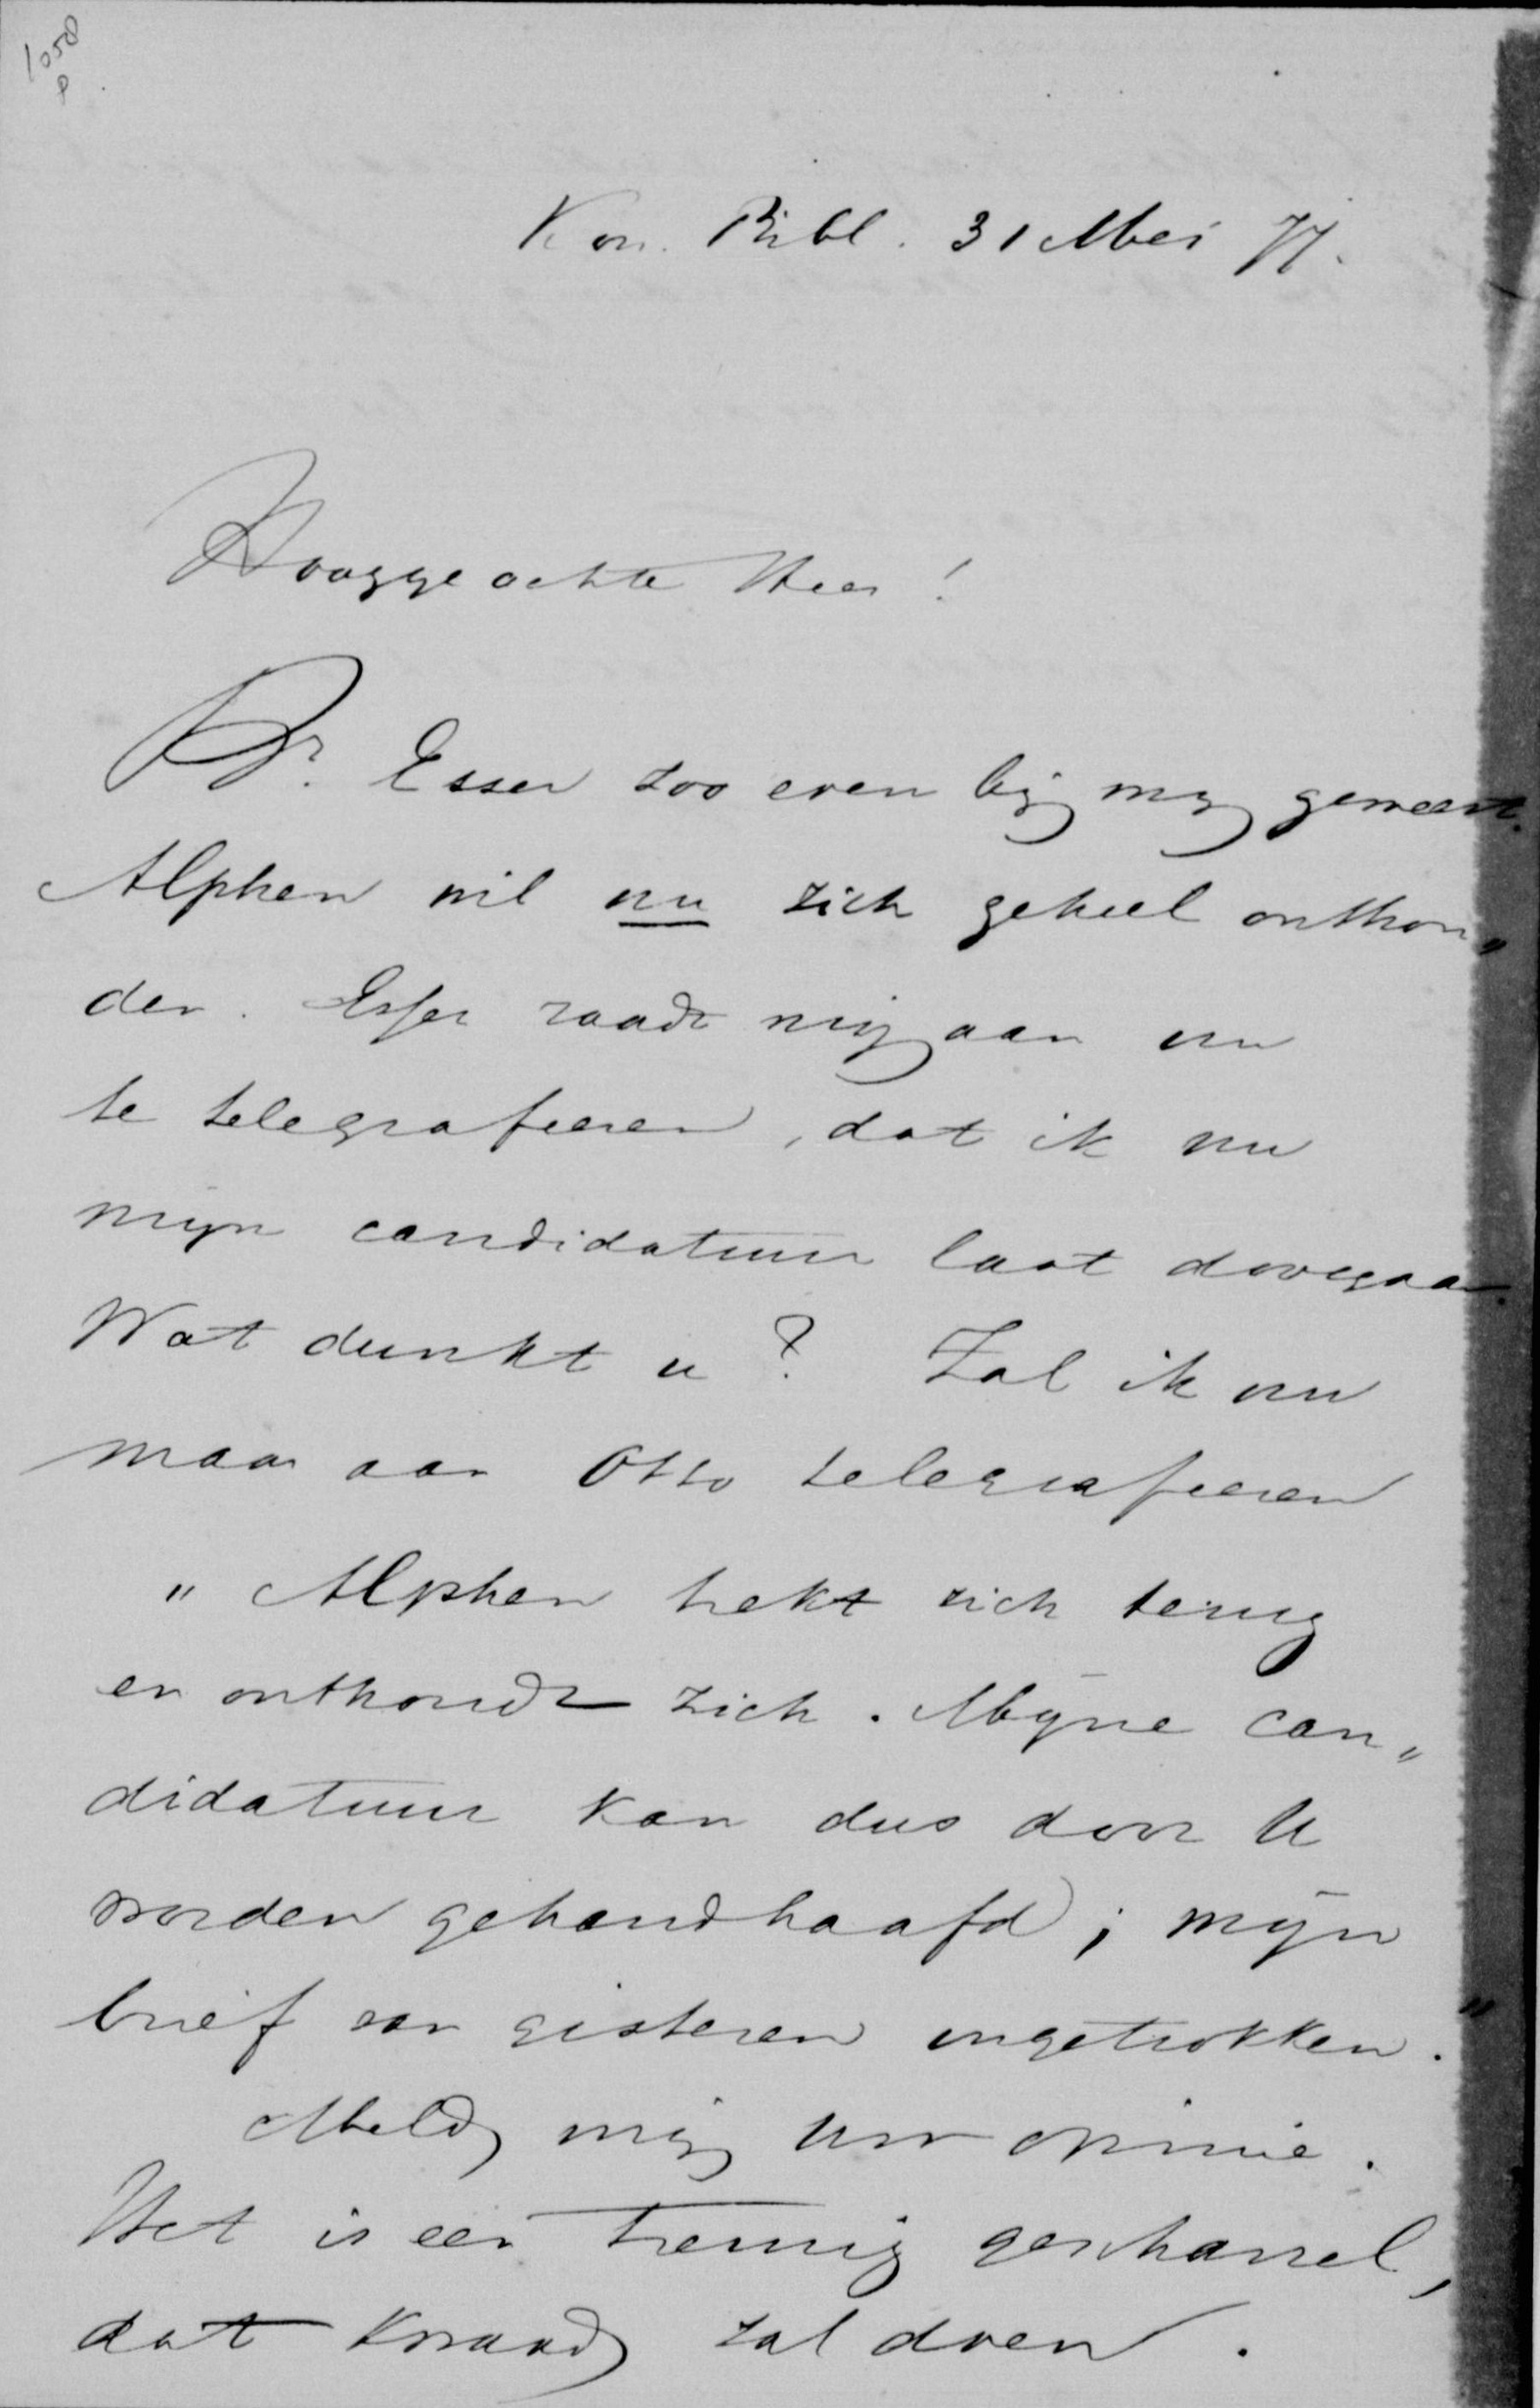 1058
P
Kon. Bibl. 31 Mei 77.
Hooggeachte Heer!
Dr. Esser zoo even bij mij geweest.
Alphen wil nu zich geheel onthou„
den. Esser raadt mij aan nu
te telegrafeeren, dat ik nu
mijn candidatuur laat doorgaan.
Wat dunkt u? Zal ik nu
maar aan Otto telegrafeeren
„Alphen trekt zich terug
en onthoudt zich. Mijne can„
didatuur kan dus door U
worden gehandhaafd; mijn
brief van gisteren ingetrokken."
Meld mij uw opinie.
Het is een treurig gescharrel,
dat kwaad zal doen.